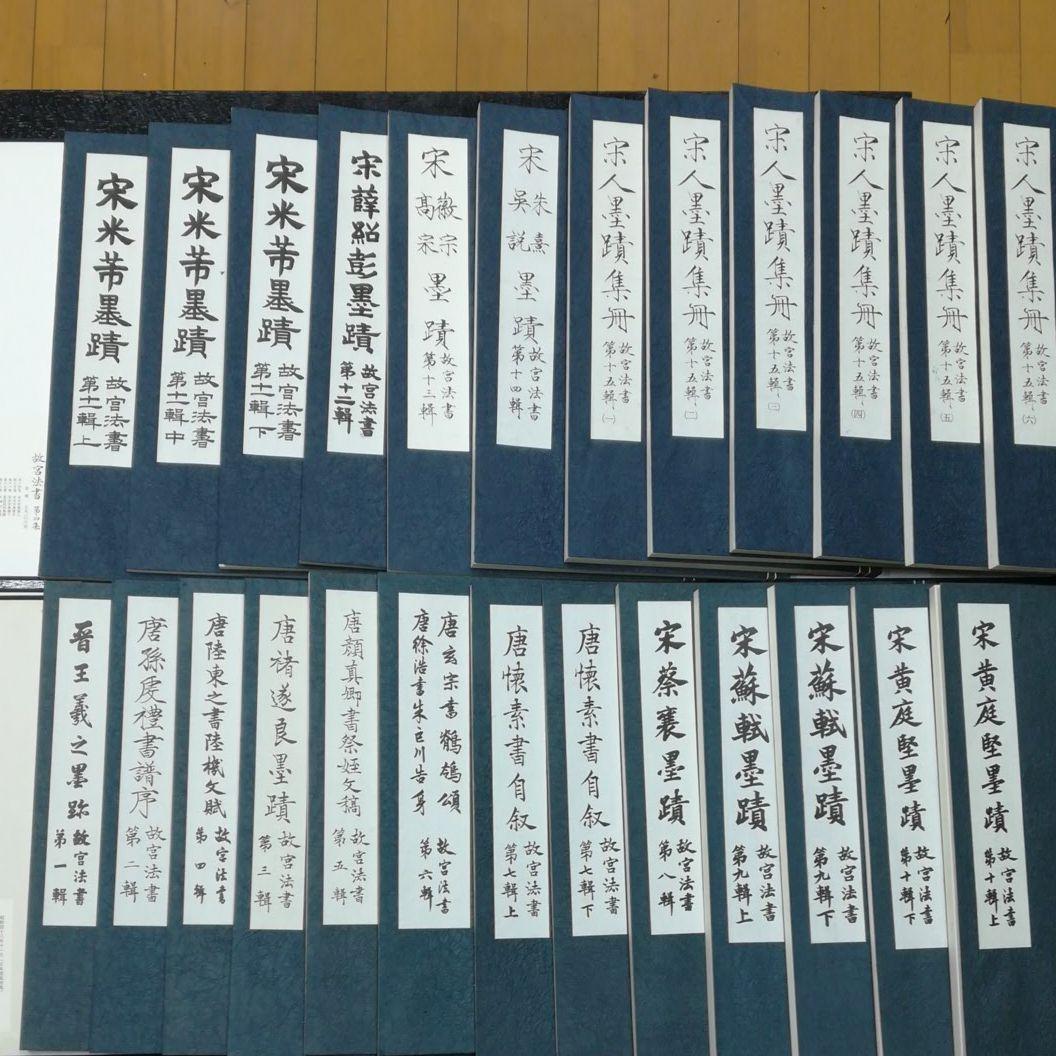 宋米芾墨蹟
故宮法書
第十一輯上
宋米芾墨蹟
故宮法書
第十一輯中
宋米芾墨蹟
故宮法書
第十一輯下
宋薛紹彭墨蹟
故宮法書
第十二輯
宋徽宗高宗墨蹟
故宮法書
第十三輯
宋朱熹吳説墨蹟
故宮法書
第十四輯
宋人墨蹟集冊
故宮法書
第十五輯(一)
宋人墨蹟集冊
故宮法書
第十五輯(二)
宋人墨蹟集冊
故宮法書
第十五輯(三)
宋人墨蹟集冊
故宮法書
第十五輯(四)
宋人墨蹟集冊
故宮法書
第十五輯(五)
宋人墨蹟集冊
故宮法書
第十五輯(六)
故宮法書 第四集
晉王羲之墨跡
故宮法書
第一輯
唐孫虔禮書譜序
故宮法書
第二輯
唐陸柬之書陸機文賦
故宮法書
第四輯
唐褚遂良墨蹟
故宮法書
第三輯
唐顏真卿書祭姪文稿
故宮法書
第五輯
唐玄宗書鶺鴒頌
唐徐浩書朱巨川告身
故宮法書
第六輯
唐懷素書自叙
故宮法書
第七輯上
唐懷素書自叙
故宮法書
第七輯下
宋蔡襄墨蹟
故宮法書
第八輯
宋蘇軾墨蹟
故宮法書
第九輯上
宋蘇軾墨蹟
故宮法書
第九輯下
宋黃庭堅墨蹟
故宮法書
第十輯下
宋黃庭堅墨蹟
故宮法書
第十輯上